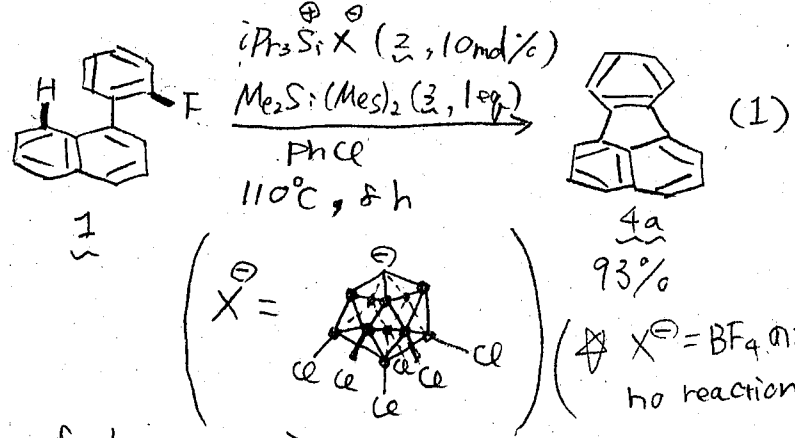 iPr₃Si⊕ X⊖ (2, 10 mol%)
Me₂Si(Mes)₂ (3, 1 eq)
PhCl
110°C, 8 h
H
F
1
4a
93%
(1)
X⊖ =
⊖
Cl Cl Cl Cl Cl Cl
☆ X⊖ = BF₄
no reaction